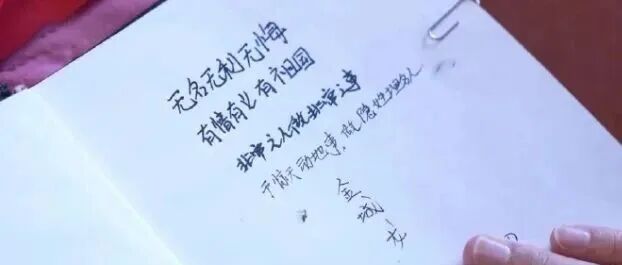 无名无利无悔
有情有义有祖国
非常之人做非常之事
干惊天动地事,做隐姓埋名人
金城戈